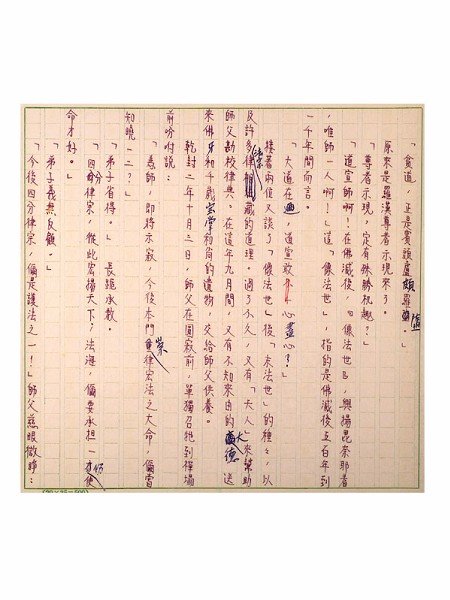 「貧道，正是賓頭盧頗羅墮。」
原來是羅漢尊者示現來了。
「尊者示現，定有殊勝祝趣？」
「道宣師啊！在佛滅後，『像法世』，興揚毘奈耶者
，唯師一人啊！」這「像法世」，指的是佛滅後五百年到
一千年間而言。
「大道在邇，道宣敢不心盡心？」
接著兩位又談了「像法世」後「末法世」的種種，以
及許多律藏的道理。過了不久，又有「天人」來幫助
師父勘校律典。在這年九月間，又有不知來由的大德，送
來佛牙和千歲寶掌和尚的遺物，交給師父供養。
乾封二年十月三日，師父在圓寂前，單獨召他到禪場
前吩咐說：
「為師，即將示寂，今後本門律宗宏法之大命，倆當
知曉一二？」
「弟子省得。」長跪承教。
「四分律宗，從此宏揚天下，法海，倆要承担一份使
命才好。」
「弟子義無反顧。」
「今後四分律宗，倆是護法之一！」師父慈眼微睜：
(20×25=500)